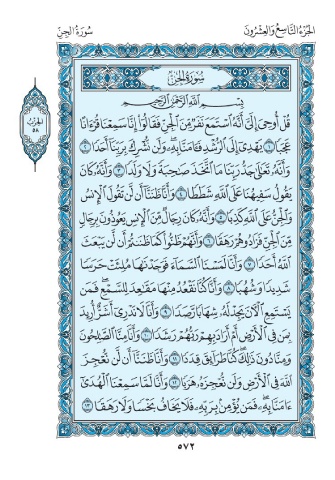 الجزء التاسع والعشرون
سورة الجن
سورة الجن
الحزب
٥٨
بسم الله الرحمن الرحيم
قُلْ أُوحِىَ إِلَىَّ أَنَّهُ ٱسْتَمَعَ نَفَرٌ مِّنَ ٱلْجِنِّ فَقَالُوٓا۟ إِنَّا سَمِعْنَا قُرْءَانًا
عَجَبًا ١ يَهْدِىٓ إِلَى ٱلرُّشْدِ فَـَٔامَنَّا بِهِۦ وَلَن نُّشْرِكَ بِرَبِّنَآ أَحَدًا ٢
وَأَنَّهُۥ تَعَٰلَىٰ جَدُّ رَبِّنَا مَا ٱتَّخَذَ صَٰحِبَةً وَلَا وَلَدًا ٣ وَأَنَّهُۥ كَانَ
يَقُولُ سَفِيهُنَا عَلَى ٱللَّهِ شَطَطًا ٤ وَأَنَّا ظَنَنَّآ أَن لَّن تَقُولَ ٱلْإِنسُ
وَٱلْجِنُّ عَلَى ٱللَّهِ كَذِبًا ٥ وَأَنَّهُۥ كَانَ رِجَالٌ مِّنَ ٱلْإِنسِ يَعُوذُونَ بِرِجَالٍ
مِّنَ ٱلْجِنِّ فَزَادُوهُمْ رَهَقًا ٦ وَأَنَّهُمْ ظَنُّوا۟ كَمَا ظَنَنتُمْ أَن لَّن يَبْعَثَ
ٱللَّهُ أَحَدًا ٧ وَأَنَّا لَمَسْنَا ٱلسَّمَآءَ فَوَجَدْنَٰهَا مُلِئَتْ حَرَسًا
شَدِيدًا وَشُهُبًا ٨ وَأَنَّا كُنَّا نَقْعُدُ مِنْهَا مَقَٰعِدَ لِلسَّمْعِ فَمَن
يَسْتَمِعِ ٱلْـَٔانَ يَجِدْ لَهُۥ شِهَابًا رَّصَدًا ٩ وَأَنَّا لَا نَدْرِىٓ أَشَرٌّ أُرِيدَ
بِمَن فِى ٱلْأَرْضِ أَمْ أَرَادَ بِهِمْ رَبُّهُمْ رَشَدًا ١٠ وَأَنَّا مِنَّا ٱلصَّٰلِحُونَ
وَمِنَّا دُونَ ذَٰلِكَ كُنَّا طَرَآئِقَ قِدَدًا ١١ وَأَنَّا ظَنَنَّآ أَن لَّن نُّعْجِزَ
ٱللَّهَ فِى ٱلْأَرْضِ وَلَن نُّعْجِزَهُۥ هَرَبًا ١٢ وَأَنَّا لَمَّا سَمِعْنَا ٱلْهُدَىٰٓ
ءَامَنَّا بِهِۦ فَمَن يُؤْمِنۢ بِرَبِّهِۦ فَلَا يَخَافُ بَخْسًا وَلَا رَهَقًا ١٣
٥٧٢